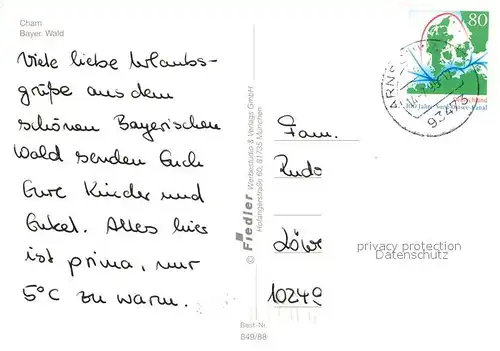 Cham
Bayer. Wald
Viele liebe Urlaubs-
grüße aus dem
schönen Bayerischen
Wald senden Euch
Eure Kinder und
Enkel. Alles hier
ist prima, nur
5°C zu warm.
© Fiedler Werbestudio & Verlags GmbH
Hofangerstraße 60, 81735 München
Best-Nr.
849/88
80
Deutschland
100 Jahre Nord-Ostsee-Kanal
93475
Fam.
Löwe
10249
privacy protection
Datenschutz